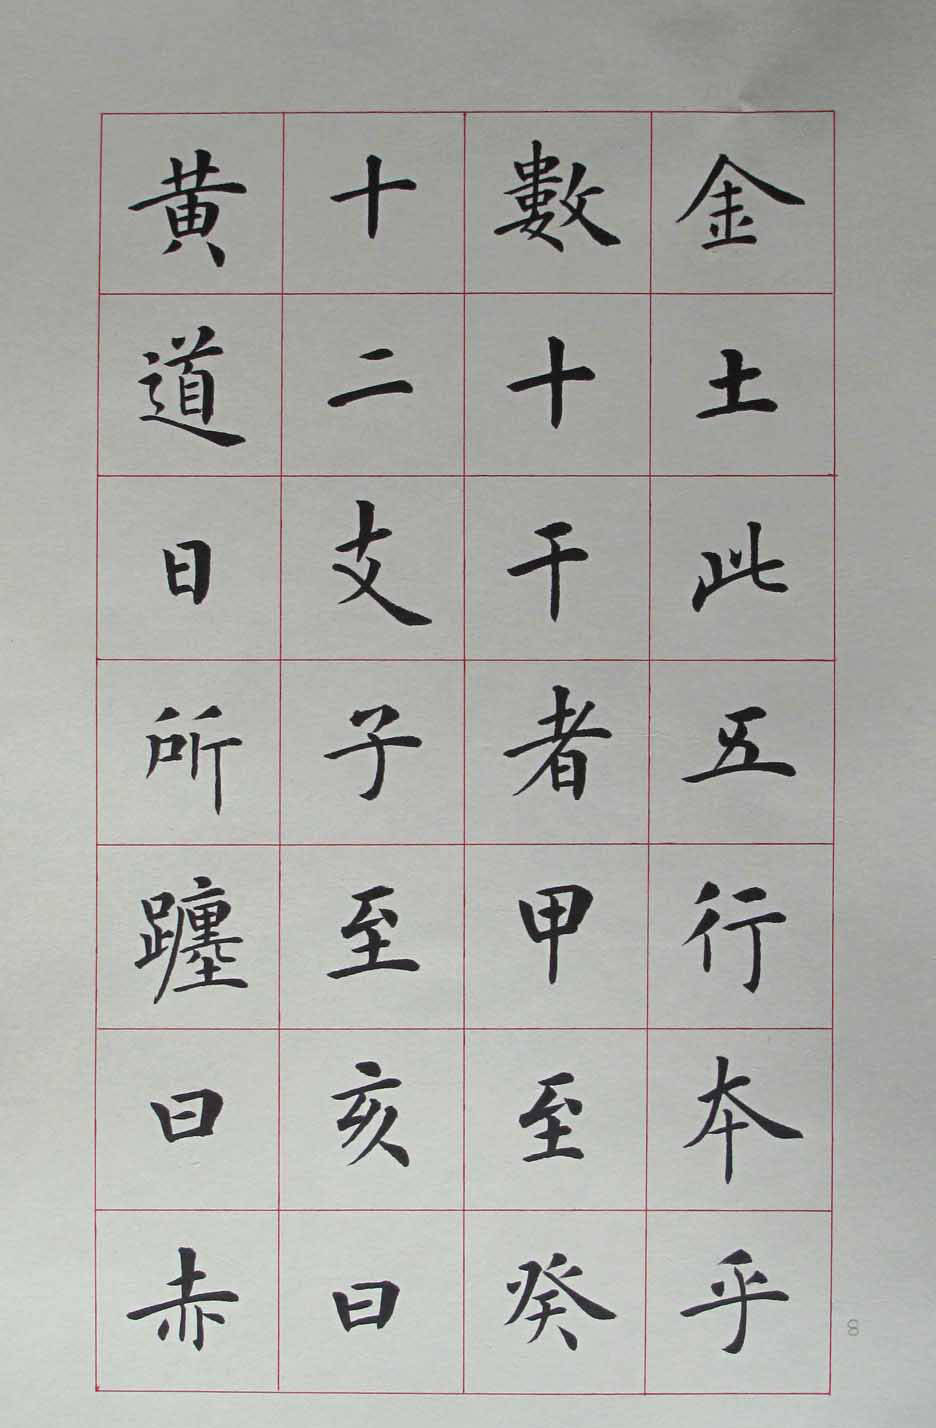 金土此五行本乎
數十干者甲至癸
十二支子至亥曰
黄道日所躔曰赤
8